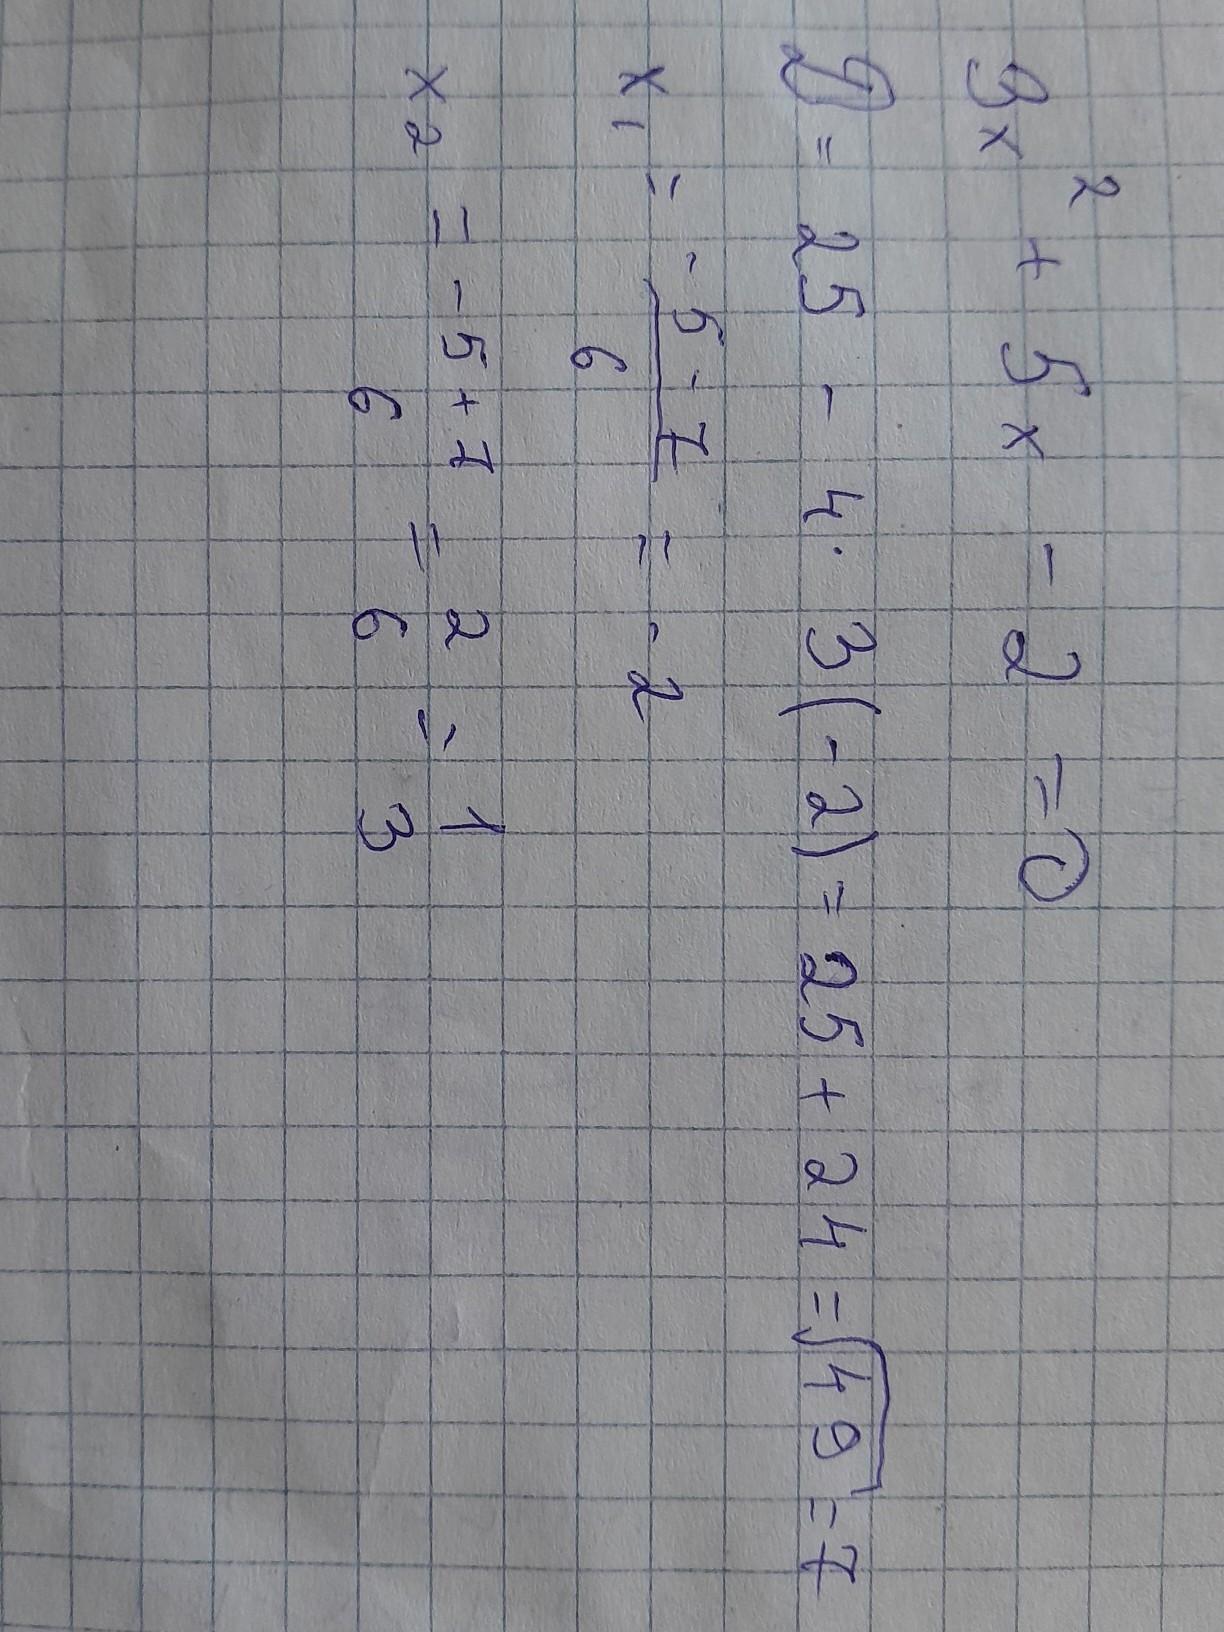 3x² + 5x - 2 = 0
D = 25 - 4 · 3(-2) = 25 + 24 = √49 = 7
x₁ = (-5 - 7)/6 = -2
x₂ = (-5 + 7)/6 = 2/6 = 1/3